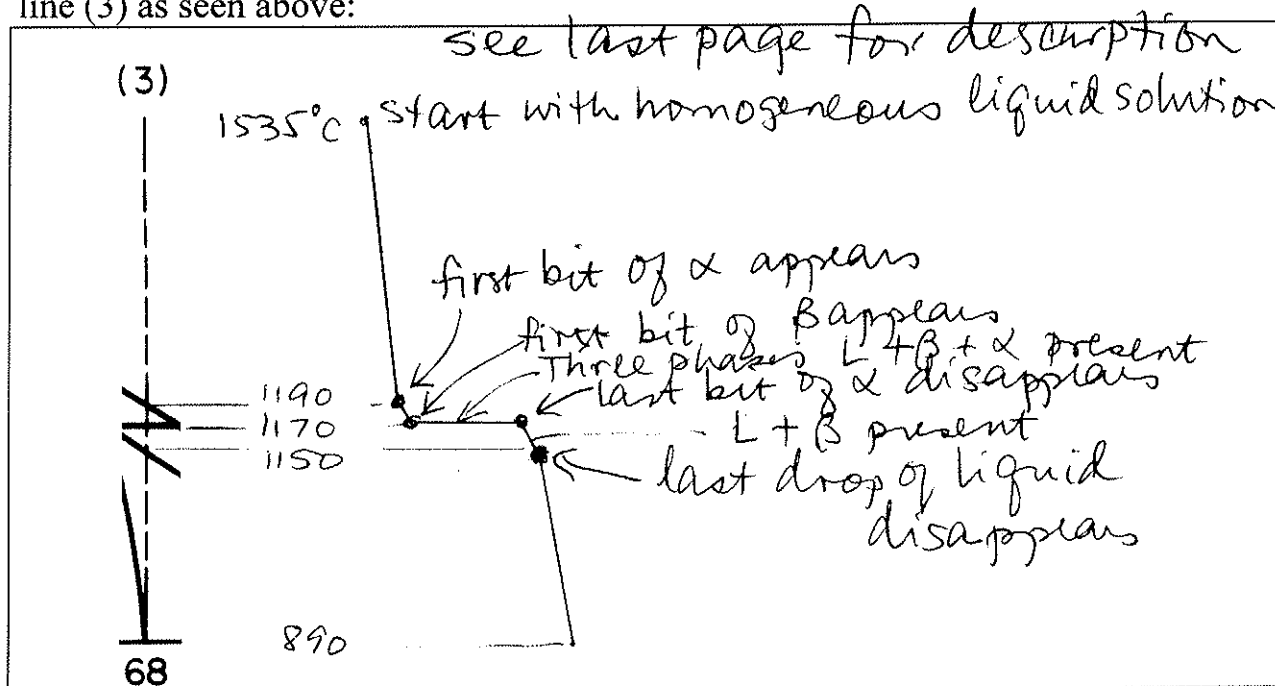 line (3) as seen above:
see last page for description
(3)
1535°C start with homogeneous liquid solution
first bit of α appears
first bit of β appears
Three phases L + β + α present
1190
last bit of α disappears
1170
L + β present
1150
last drop of liquid
disappears
890
68